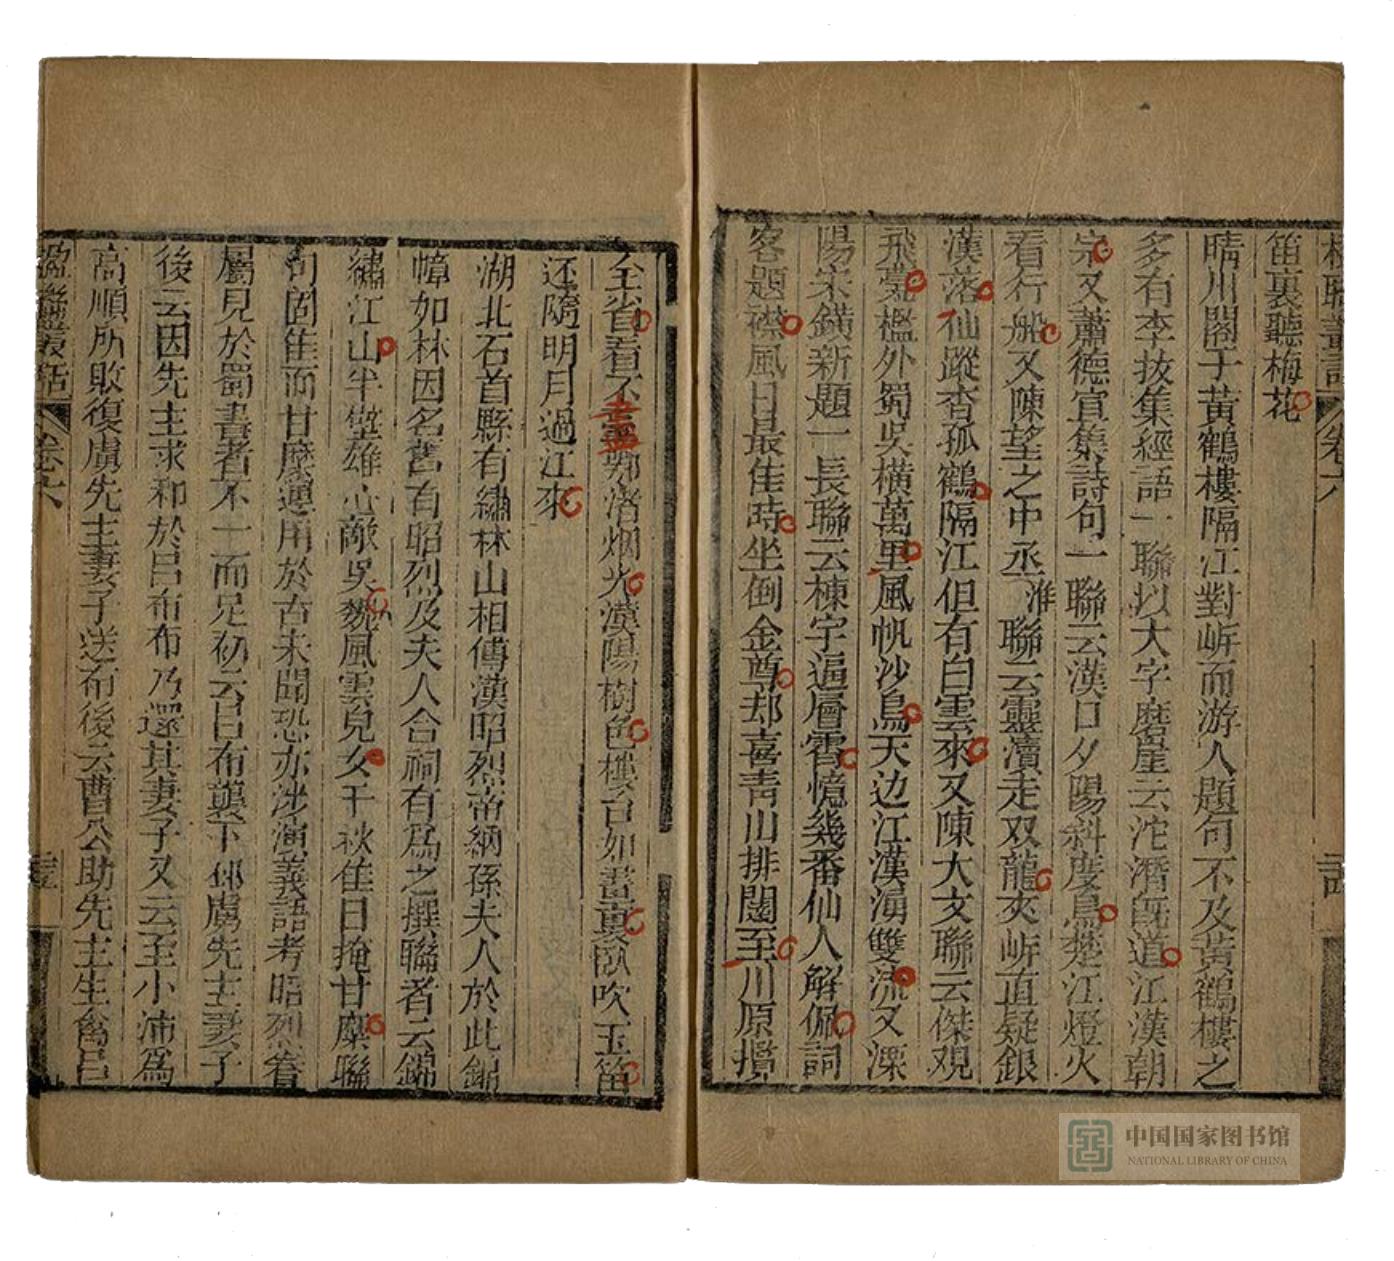 楹聯叢話 卷六
笛裏聽梅花
晴川閣于黃鶴樓隔江對峙而游人題句不及黃鶴樓之
多有李拔集經語一聯以大字磨崖云沱潛旣道江漢朝
宗又蕭德宣集詩句一聯云漢口夕陽斜度鳥楚江燈火
看行船又陳望之中丞淮聯云靈瀆走双龍夾峙直疑銀
漢落仙蹤杳孤鶴隔江但有白雲來又陳大文聯云傑观
飛甍檻外蜀吳橫萬里風帆沙鳥天边江漢湧雙流又溧
陽宋鑅新題一長聯云棟宇逼層霄憶幾番仙人解佩詞
客題襟風日最佳時坐倒金尊却喜青山排闥至川原攬
全省看不盡鄂渚烟光漢陽樹色樓台如畫莫臥吹玉笛
还隨明月過江來
湖北石首縣有繡林山相傳漢昭烈帝納孫夫人於此錦
幛如林因名舊有昭烈及夫人合祠有爲之撰聯者云錦
繡江山半壁雄心敵吳魏風雲兒女千秋佳日掩甘糜聯
句固佳而甘糜連用於古未聞恐亦涉演義語考昭烈眷
屬見於蜀書者不一而足初云呂布襲下邳虜先主妻子
後云因先主求和於呂布布乃還其妻子又云至小沛爲
高順所敗復虜先主妻子送布後云曹公助先主生禽呂
楹聯叢話 卷六
中国国家图书馆
NATIONAL LIBRARY OF CHINA